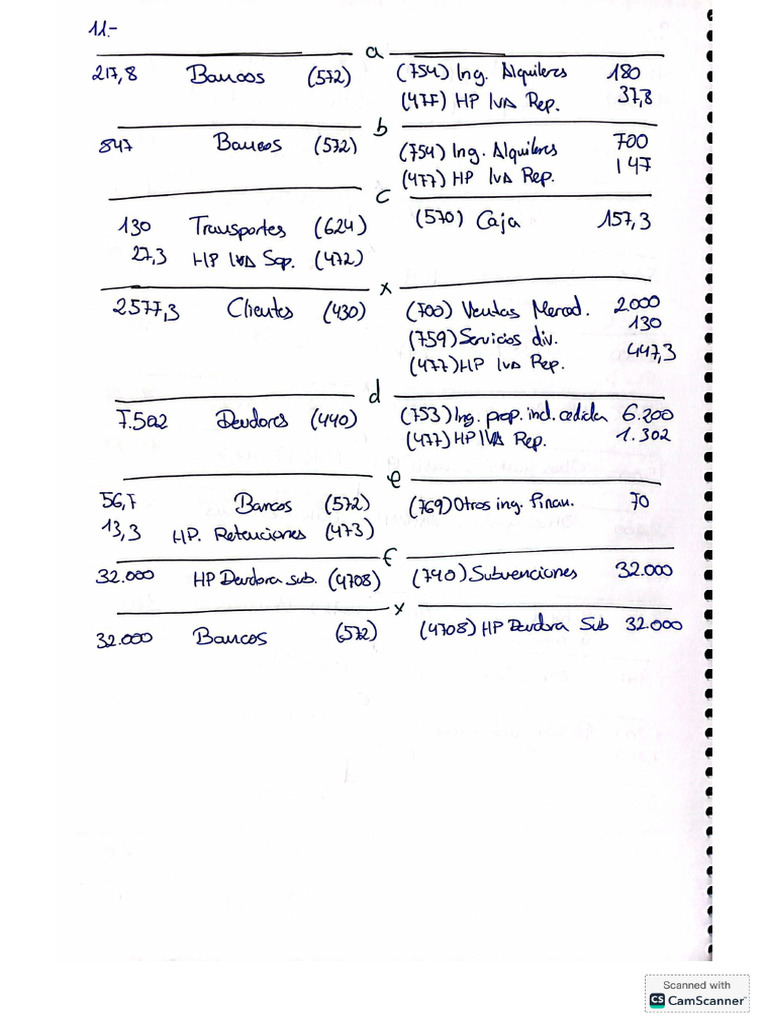 11.-
a
217,8 Bancos (572) (754) Ing. Alquileres 180
(477) HP IVA Rep. 37,8
b
847 Bancos (572) (754) Ing. Alquileres 700
(477) HP IVA Rep. 147
c
130 Transportes (624) (570) Caja 157,3
27,3 HP IVA Sop. (472)
x
2577,3 Clientes (430) (700) Ventas Mercad. 2.000
(759) Servicios div. 130
(477) HP IVA Rep. 447,3
d
7.502 Deudores (440) (753) Ing. prop. ind. cedida 6.200
(477) HP IVA Rep. 1.302
e
56,7 Bancos (572) (769) Otros ing. Finan. 70
13,3 HP. Retenciones (473)
f
32.000 HP Deudora sub. (4708) (740) Subvenciones 32.000
x
32.000 Bancos (572) (4708) HP Deudora Sub 32.000
Scanned with
CS CamScanner